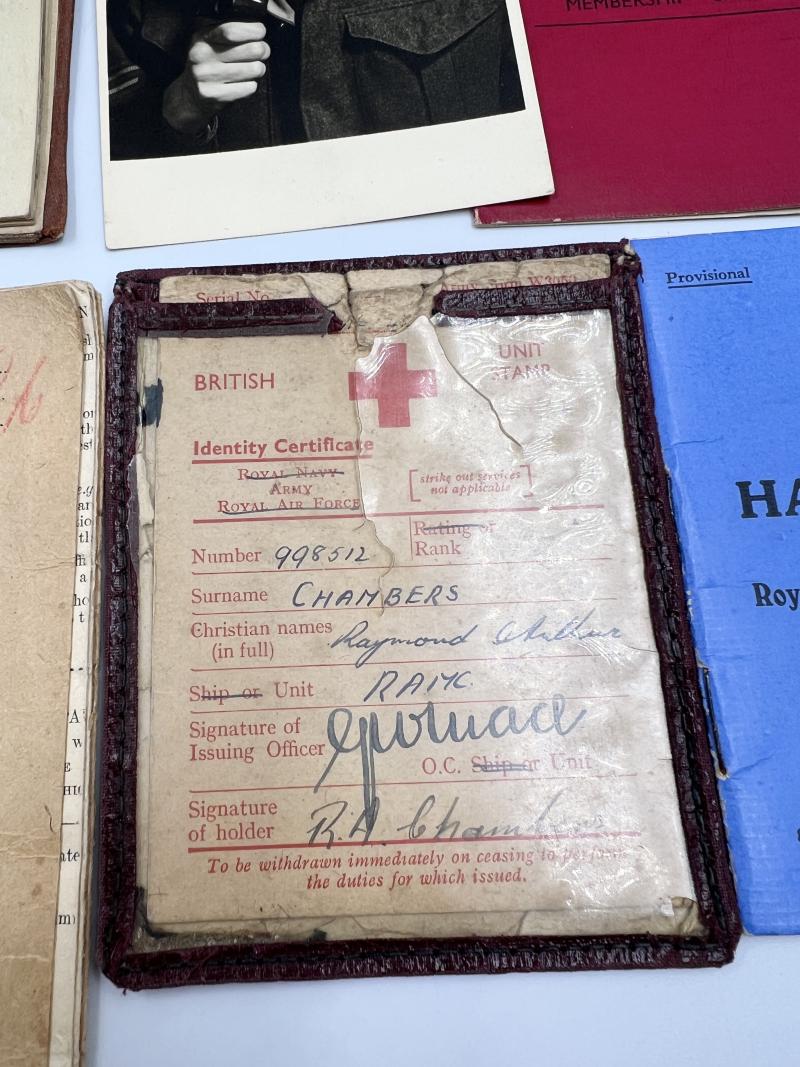 MEMBERSHIP
Provisional
Serial No.
BRITISH
UNIT
STAMP
Identity Certificate
ROYAL NAVY
ARMY
ROYAL AIR FORCE
[strike out services
not applicable]
Number 998512
Rating or
Rank
Surname CHAMBERS
Christian names Raymond Arthur
(in full)
Ship or Unit RAMC.
Signature of
Issuing Officer
O.C. Ship or Unit
Signature
of holder R.A. Chambers
To be withdrawn immediately on ceasing to perform
the duties for which issued.
HA
Roy